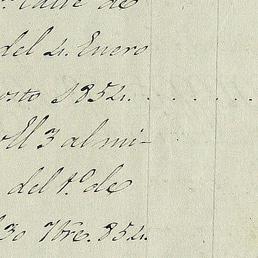 calle de
del 4. Enero
osto 1854. . . . . .
El 3 al mi-
del 1.º de
30 7bre. 854.